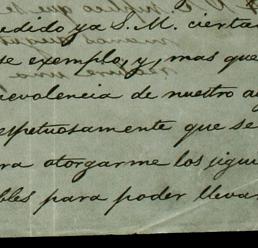 edido ya S. M. ciertam
se exemplo, y, mas que
nevolencia de nuestro au
espetuosamente que se
ra otorgarme los sigui
bles para poder lleva